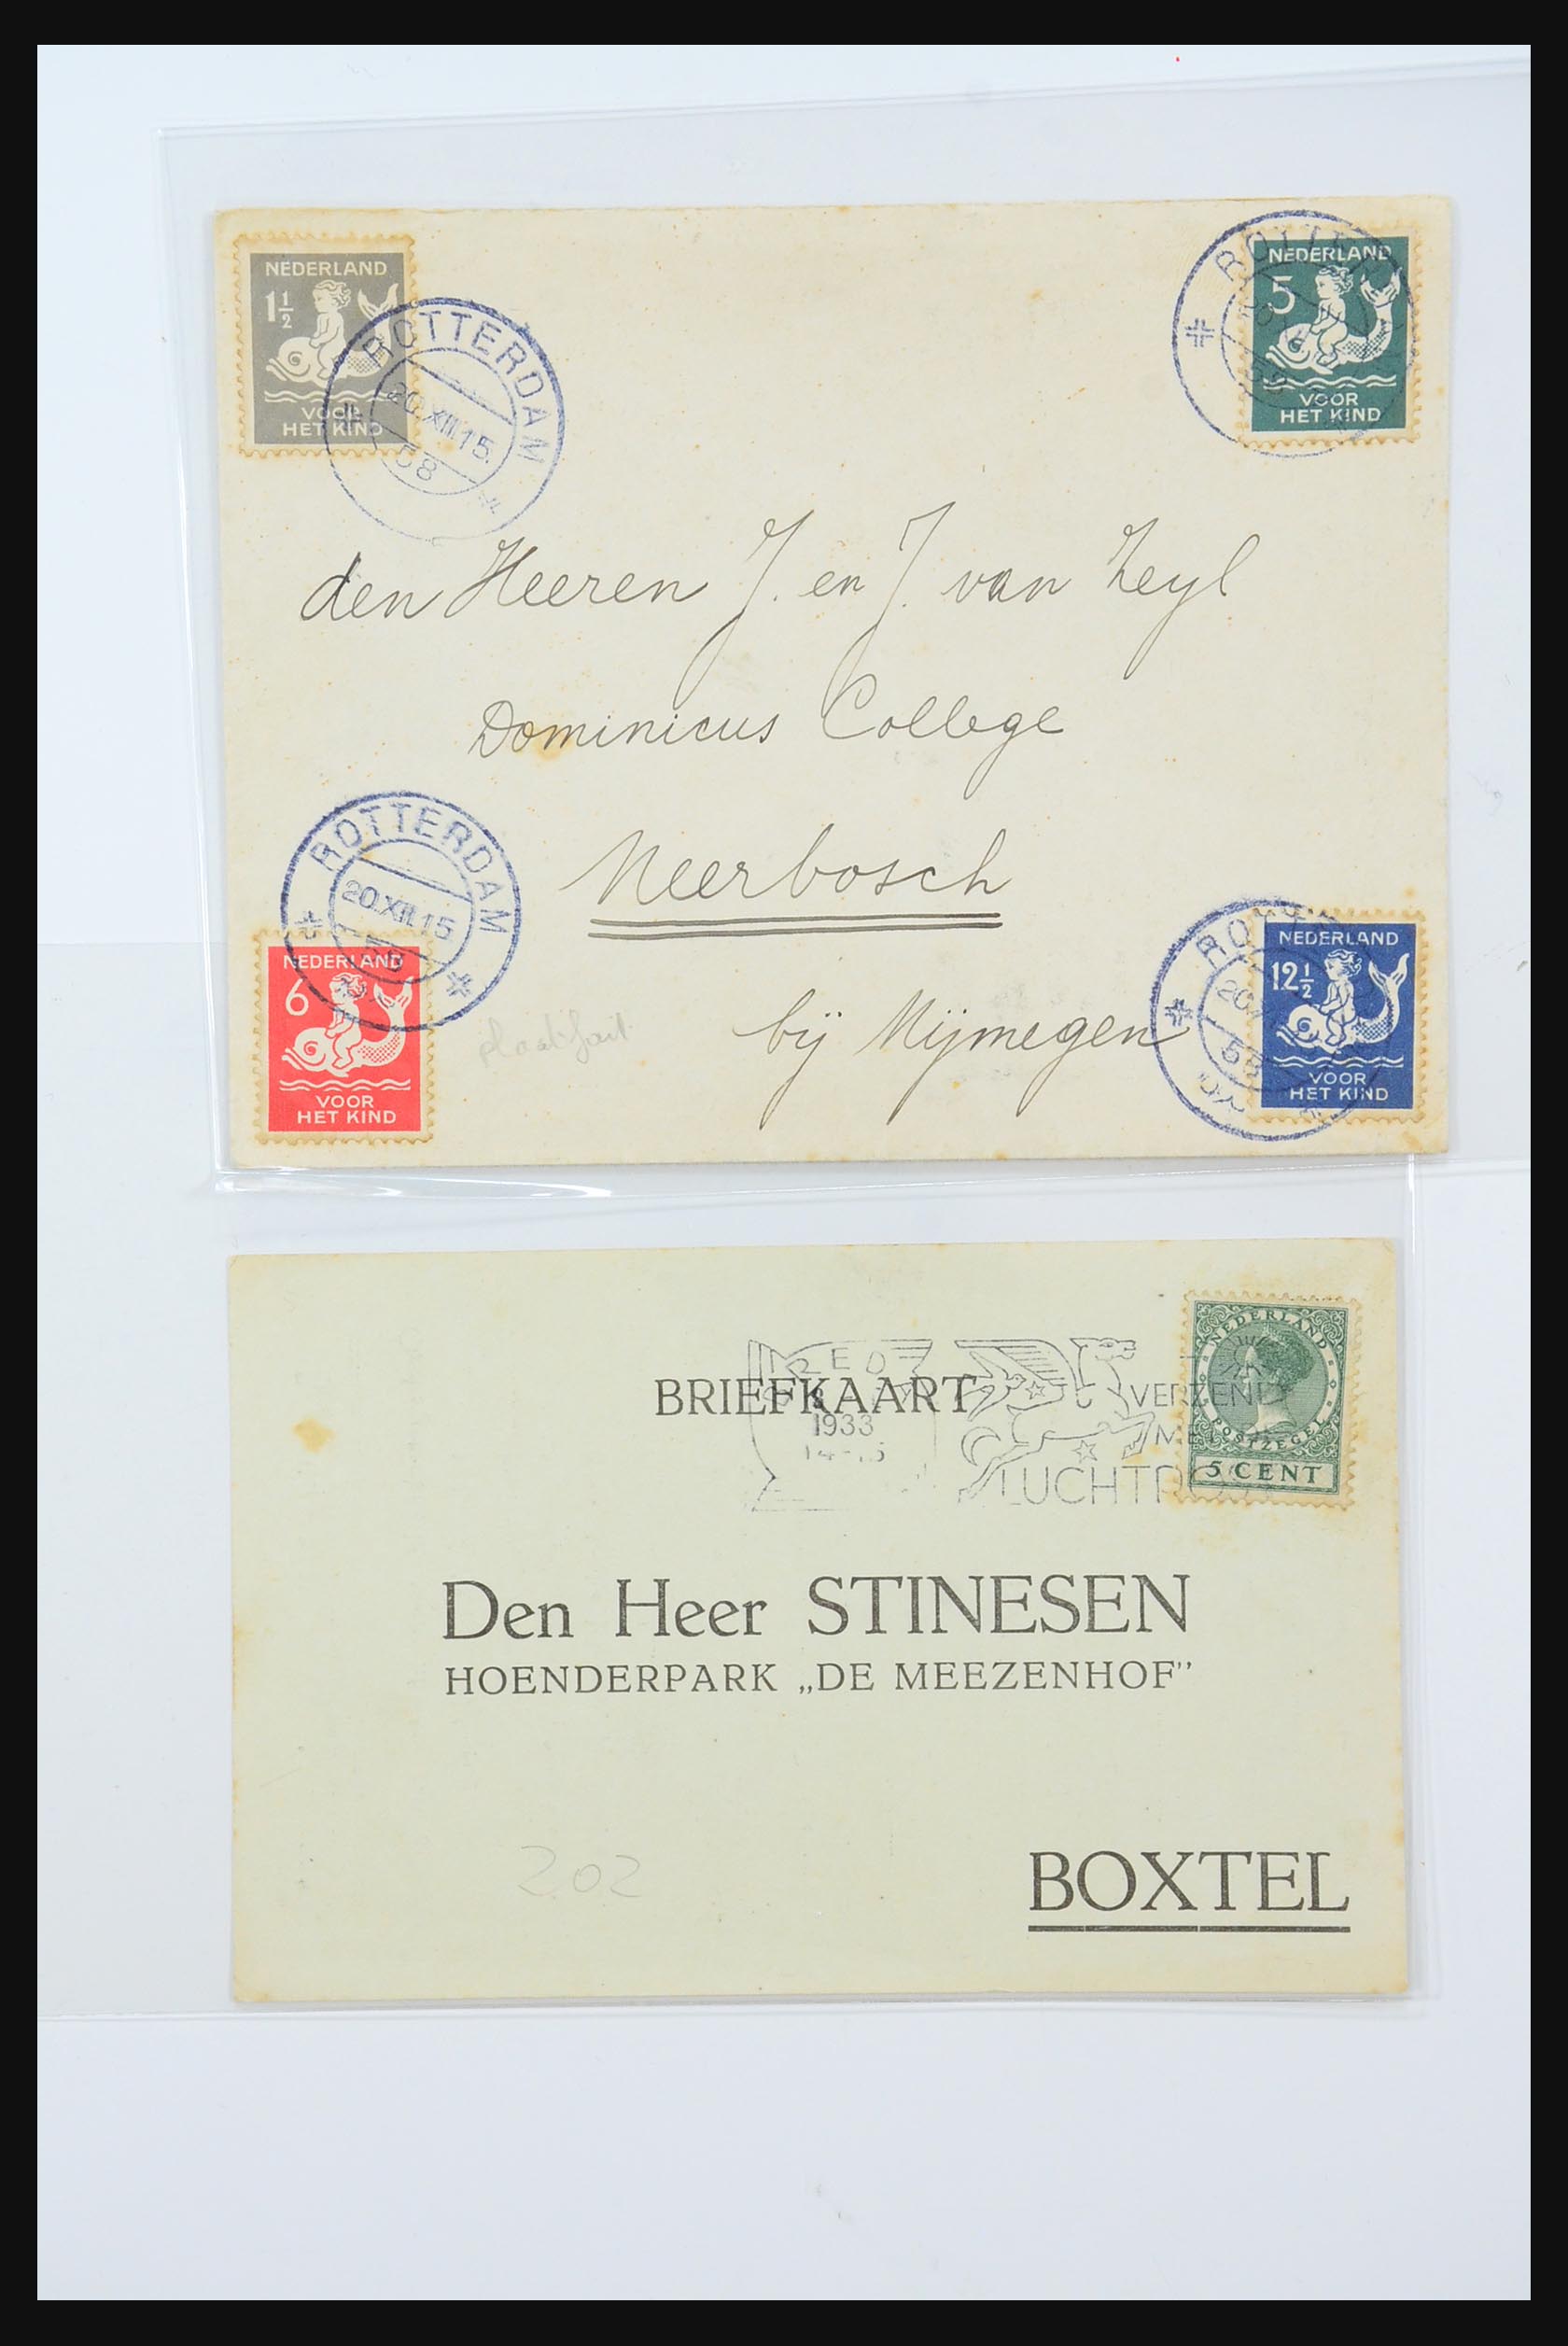 NEDERLAND
1½
VOOR
HET KIND
ROTTERDAM
20.XII.15.
58
NEDERLAND
5
VOOR
HET KIND
den Heeren J. en J. van Zeyl
Dominicus College
Neerbosch
bij Nijmegen
ROTTERDAM
20.XII.15
NEDERLAND
6
VOOR
HET KIND
plaatfout
58
NEDERLAND
12½
VOOR
HET KIND
BRIEFKAART
1933
VERZEND
LUCHTPOST
NEDERLAND
POSTZEGEL
5 CENT
Den Heer STINESEN
HOENDERPARK „DE MEEZENHOF”
202
BOXTEL